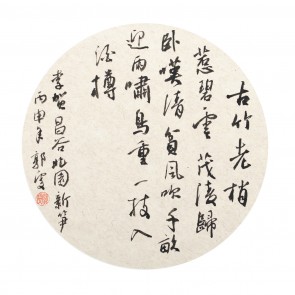 古竹老梢
惹碧雲茂陵歸
卧嘆清貧風吹千畝
迎雨嘯鳥重一枝入
酒樽
李賀昌谷北園新笋
丙申年郭雯